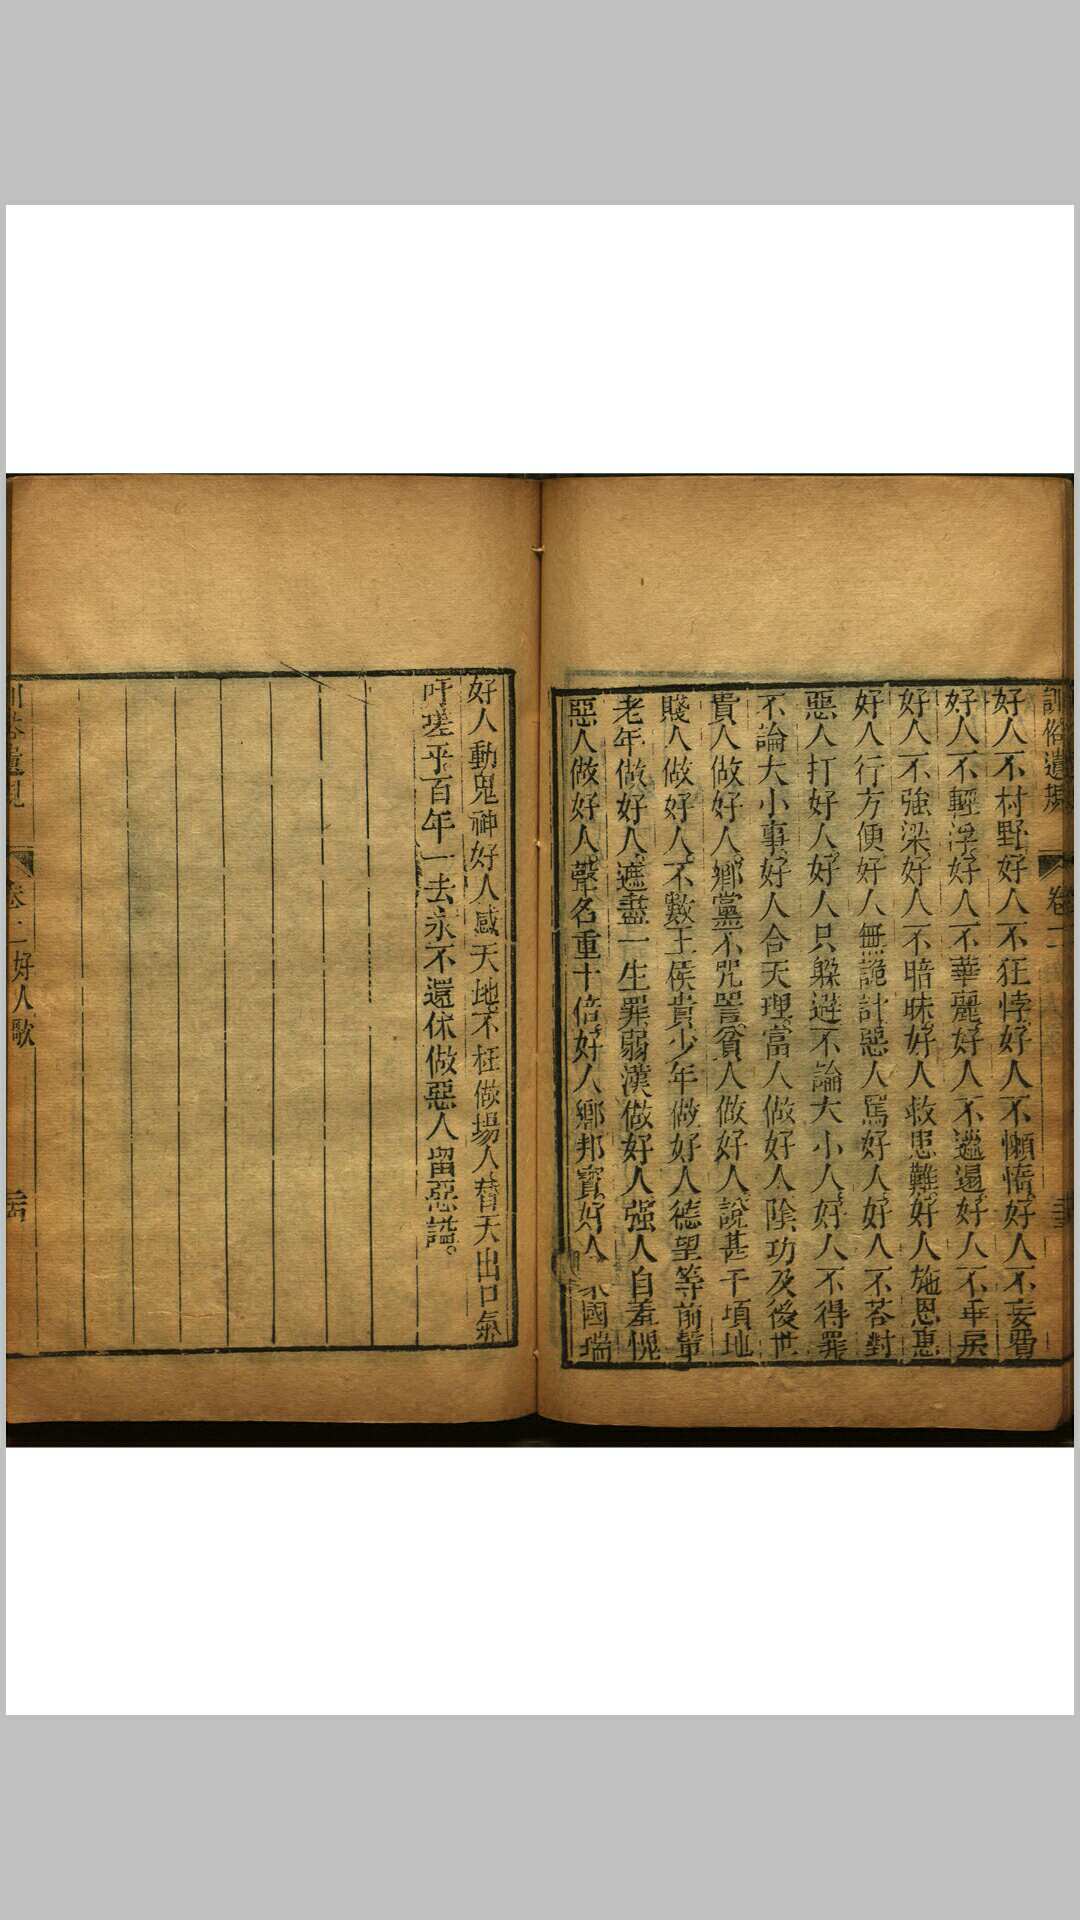 訓俗遺規 卷二
好人不村野好人不狂悖好人不懶惰好人不妄費
好人不輕浮好人不華麗好人不邋遢好人不乖戾
好人不強梁好人不暗昧好人救患難好人施恩惠
好人行方便好人無詭計惡人罵好人好人不荅對
惡人打好人好人只躱避不論大小人好人不得罪
不論大小事好人合天理富人做好人陰功及後世
貴人做好人鄉黨不咒詈貧人做好人說甚千頃地
賤人做好人不數王侯貴少年做好人德望等前輩
老年做好人遮盡一生罪弱漢做好人强人自羞愧
惡人做好人聲名重十倍好人鄉邦寶好人國瑞
好人動鬼神好人感天地不枉做場人替天出口氣
吁嗟乎百年一去永不還休做惡人留惡譜
訓俗遺規 卷二好人歌